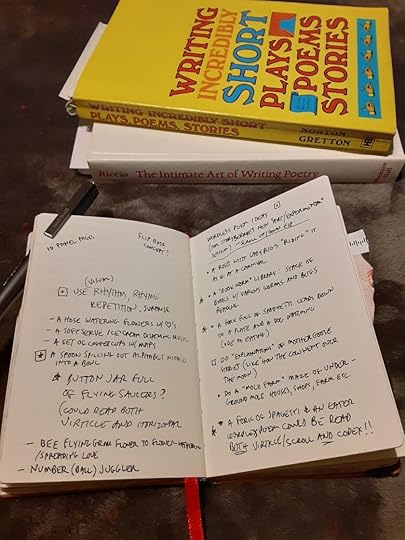 WRITING
INCREDIBLY
SHORT
PLAYS
POEMS
STORIES
WRITING INCREDIBLY SHORT
PLAYS, POEMS, STORIES
NORTON
GRETTON
Riccia The Intimate Art of Writing Poetry
10 PANEL PAGES
FLIP BOOK
CONCEPT!
(VISUAL)
USE RHYTHM, RHYME
REPETITION, SURPRISE
- A HOSE WATERING FLOWERS W/ O'S
- A SOFT SERVE ICE CREAM DISPENSING MUSIC
- A SET OF COFFEE CUPS W/ MAPS
A SPOON SPILLING OUT ALPHABET NOODLES
INTO A BOWL
BUTTON JAR FULL
OF FLYING SAUCERS?
(COULD READ BOTH
VIRTICLE AND HORIZONAL
- BEE FLYING FROM FLOWER TO FLOWER
/SPREADING LOVE
- NUMBER (BALL) JUGGLER
WORDLESS POEM IDEAS
A ROSE WITH LADYBUGS "RIDING" IT
AS IF AT A CARNIVAL
A "BOOK WORM" LIBRARY - STACK OF
BOOKS W/ VARIOUS WORMS AND BUGS
READING
A FORK FULL OF SPAGHETTI LEADS DOWN
TO A PLATE AND A DOG WATCHING
(OR EATING)
DO "EXPLANATIONS" OF MOTHER GOOSE
STORIES (LIKE HOW THE COW WENT OVER
THE MOON)
DO A "MOLE FARM" MAZE OF UNDER-
GROUND MOLE HOUSES, SHOPS, FARM ETC.
A FORK OF SPAGETTI & AN EATER
WORDLESS POEM COULD BE READ
BOTH VIRTICLE/SCROLL AND CODEX!!